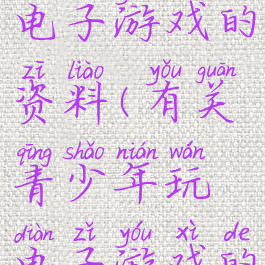 电子游戏的
zī liào yǒu guān
资料(有关
qīng shǎo nián wán
青少年玩
diàn zǐ yóu xì de
电子游戏的